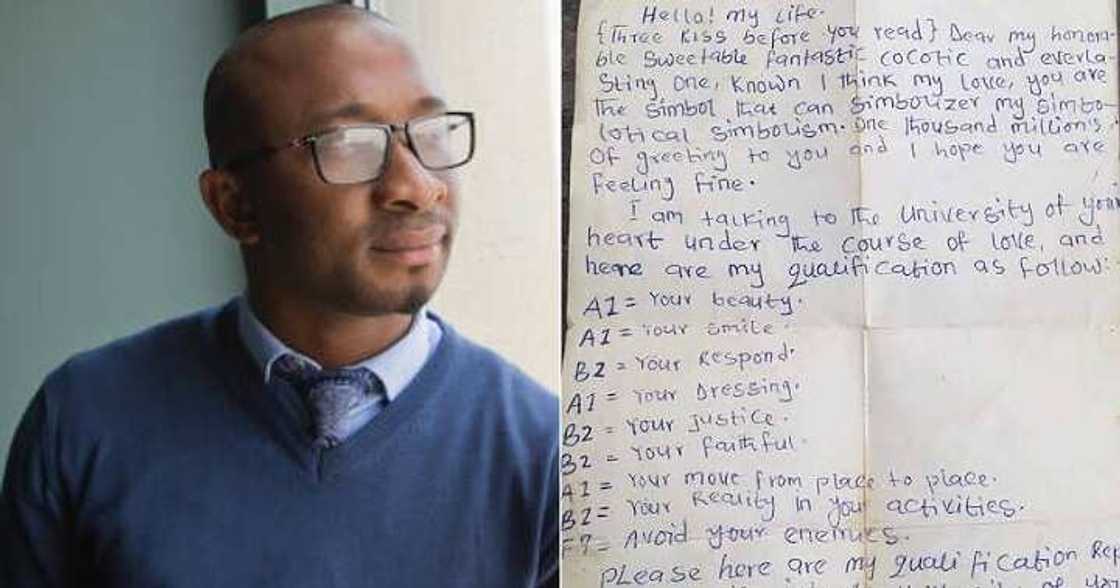 Hello! my life.
{Three kiss before you read} Dear my honora-
ble sweetable fantastic cocotic and everla-
sting one, known I think my love, you are
the simbol that can simbolizer my simbo-
lotical simbolism. One thousand millions
of greeting to you and I hope you are
feeling fine.
I am talking to the university of your
heart under the course of love, and
here are my qualification as follow:
A1 = Your beauty.
A1 = Your smile.
B2 = Your Respond.
A1 = Your Dressing.
B2 = Your justice.
B2 = Your faithful.
A1 = Your move from place to place.
B2 = Your Reality in your activities.
F7 = Avoid your enemies.
Please here are my qualification